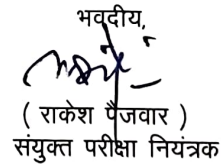 भवदीय,
( राकेश पैजवार )
संयुक्त परीक्षा नियंत्रक